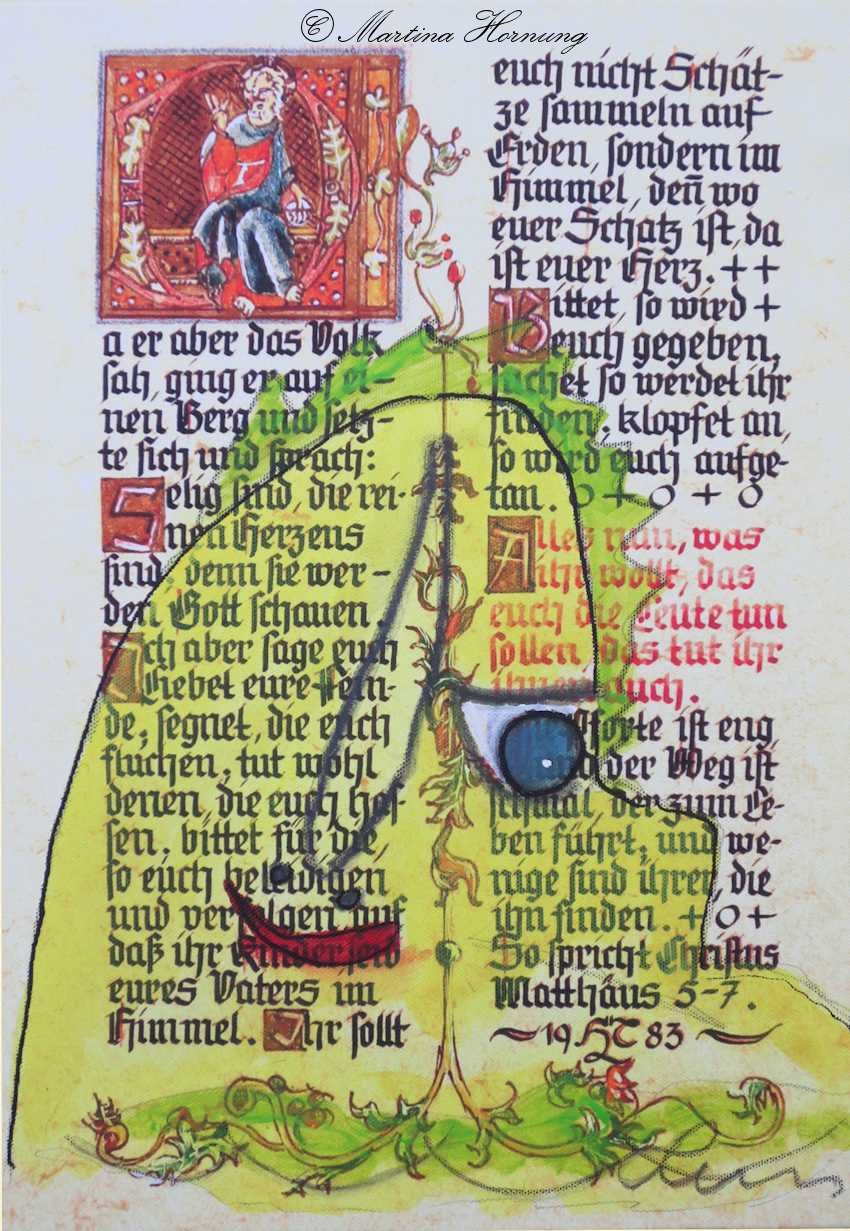 © Martina Hornung
a er aber das Volk
sah, ging er auf ei-
nen Berg und setz-
te sich und sprach:
Selig sind, die rei-
nen Herzens
sind, denn sie wer-
den Gott schauen.
Ich aber sage euch
Liebet eure Fein-
de, segnet, die euch
fluchen, tut wohl
denen, die euch has-
sen, bittet für die,
so euch beleidigen
und verfolgen, auf
daß ihr Kinder seid
eures Vaters im
Himmel. Ihr sollt
euch nicht Schät-
ze sammeln auf
Erden, sondern im
Himmel, deñ wo
euer Schatz ist, da
ist euer Herz. + +
Bittet, so wird +
euch gegeben,
suchet so werdet ihr
finden, klopfet an,
so wird euch aufge-
tan. o + o + o
Alles nun, was
ihr wollt, das
euch die Leute tun
sollen, das tut ihr
ihnen auch.
Pforte ist eng
und der Weg ist
schmal, der zum Le-
ben führt, und we-
nige sind ihrer, die
ihn finden. + o +
So spricht Christus
Matthäus 5-7.
19 HT 83